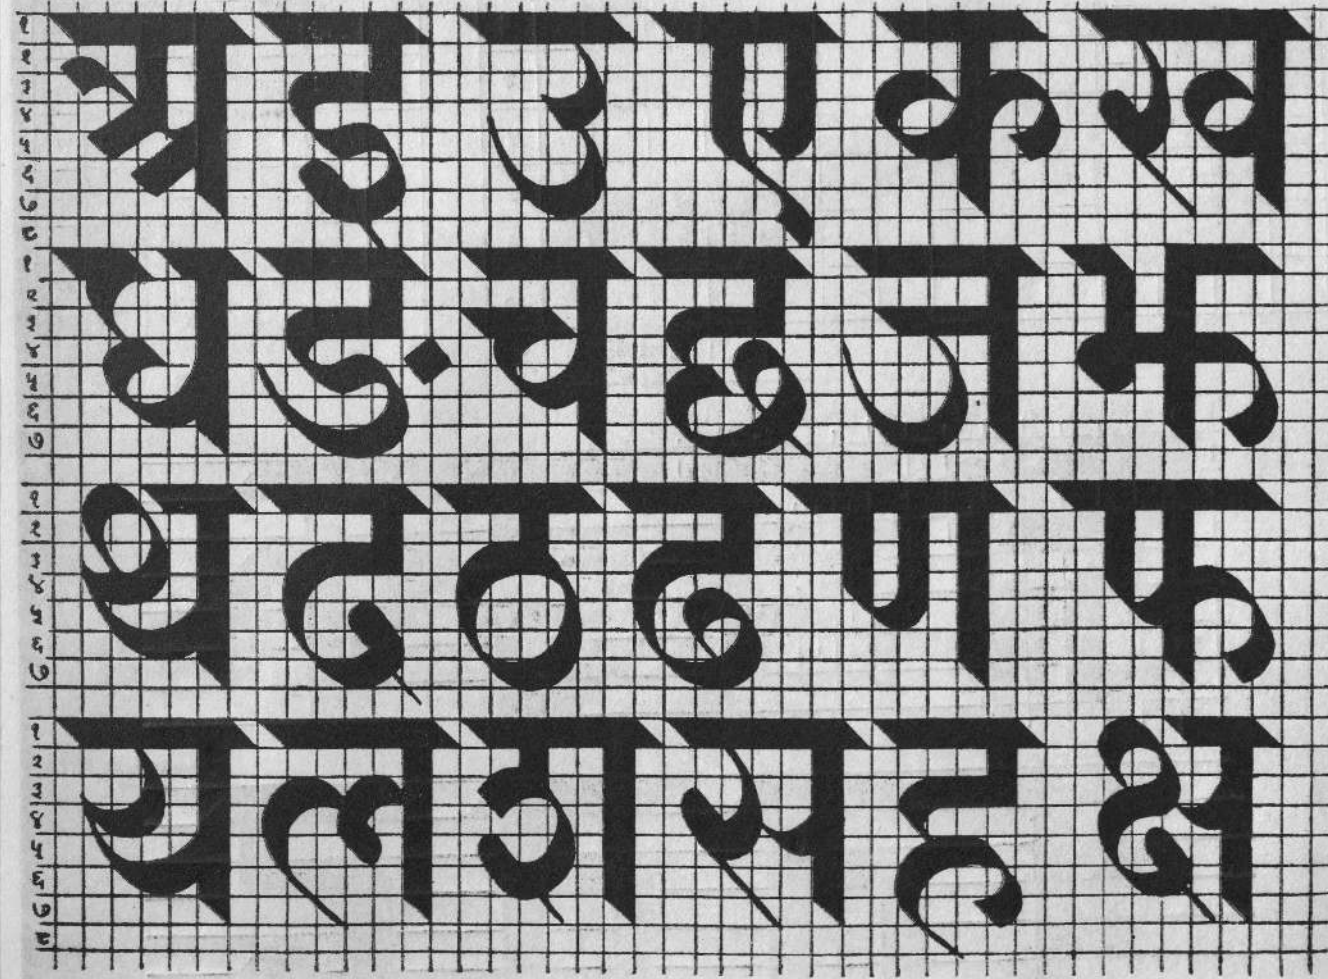 १ २ ३ ४ ५ ६ ७ ८
अ इ उ ए क ख
१ २ ३ ४ ५ ६ ७
घ ङ च छ ज झ
१ २ ३ ४ ५ ६ ७
थ द ठ ढ ण फ
१ २ ३ ४ ५ ६ ७ ८
य ल श स ह क्ष